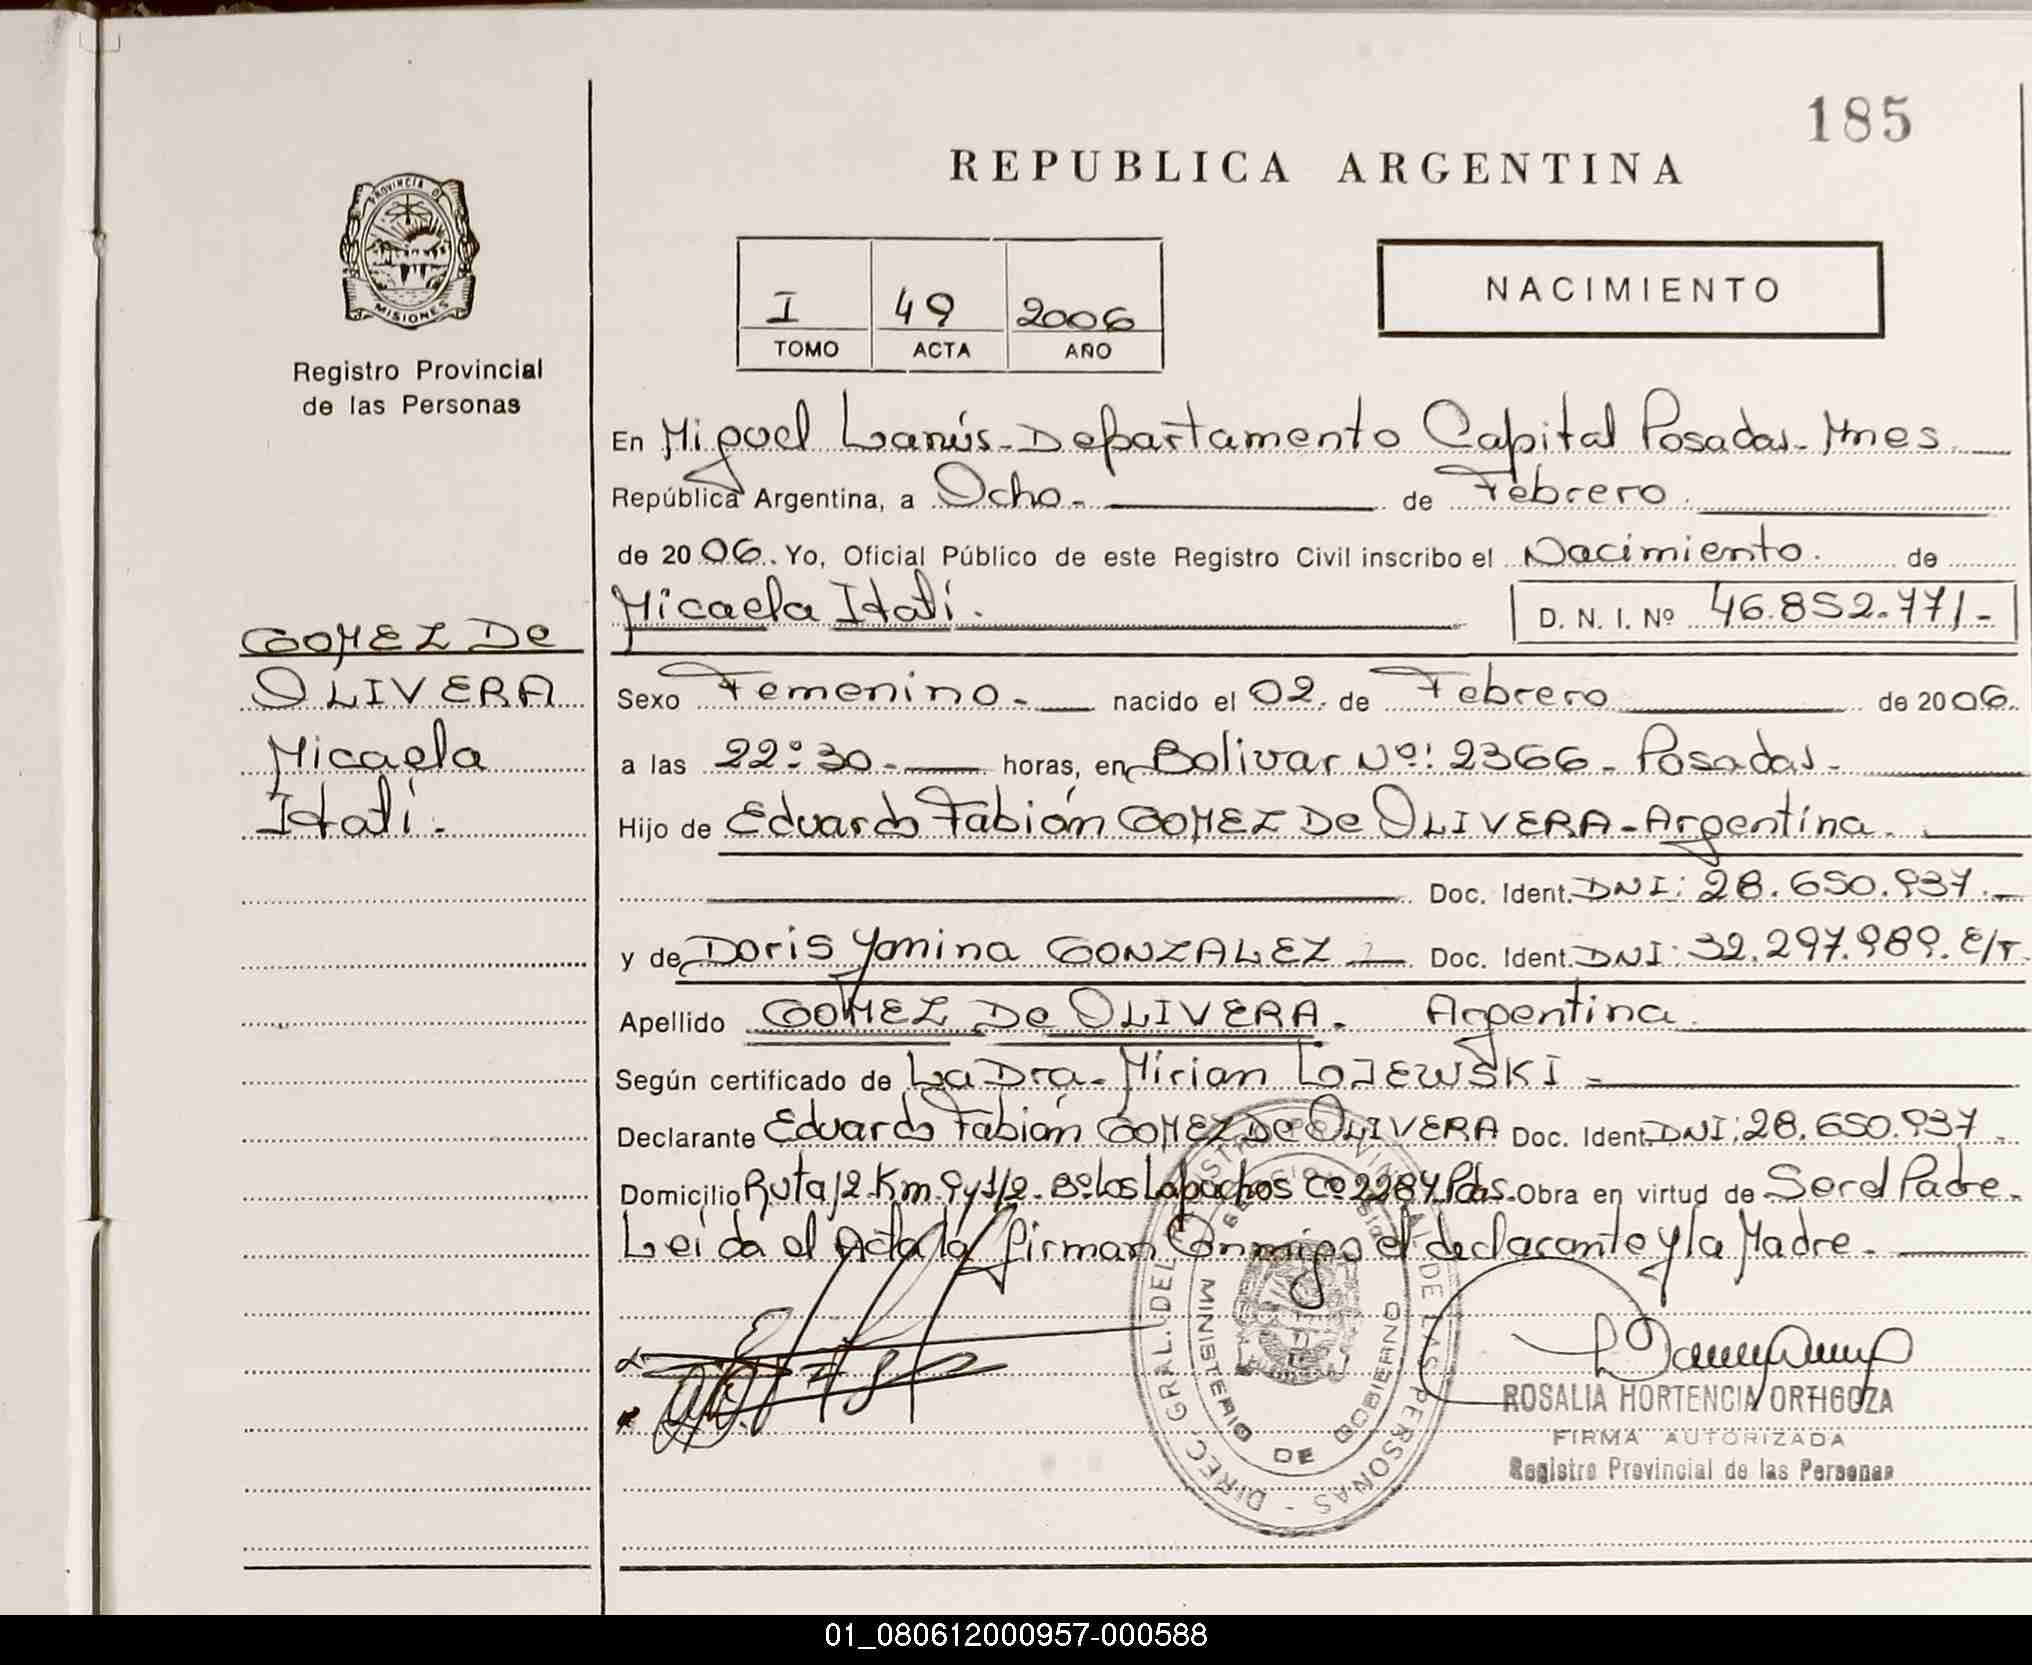 185
REPUBLICA ARGENTINA
PROVINCIA DE
MISIONES
Registro Provincial
de las Personas
I 49 2006
TOMO ACTA AÑO
NACIMIENTO
En Miguel Lanús - Departamento Capital Posadas - Mnes
República Argentina, a Ocho - de Febrero
de 2006. Yo, Oficial Público de este Registro Civil inscribo el Nacimiento. de
Micaela Itatí. D. N. I. Nº 46.852.771-
GOMEZ De
OLIVERA
Micaela
Itatí.
Sexo Femenino - nacido el 02. de Febrero de 2006.
a las 22:30 - horas, en Bolivar Nº: 2366 - Posadas -
Hijo de Eduardo Fabián GOMEZ De OLIVERA - Argentina.
Doc. Ident. DNI: 28.650.937.-
y de Doris Yanina GONZALEZ - Doc. Ident. DNI: 32.297.989. E/T.
Apellido GOMEZ De OLIVERA. Argentina.
Según certificado de La Dra - Mirian LOJEWSKI -
Declarante Eduardo Fabián GOMEZ De OLIVERA Doc. Ident. DNI: 28.650.937.
Domicilio Ruta 12 - Km 9 y 1/2 - Bº Los Lapachos Cº 2284 Pdas. Obra en virtud de Ser el Padre.
Leída el Acta la firman Conmigo el declarante y la Madre.
DIREC. GRAL. DEL REGISTRO PROVINCIAL DE LAS PERSONAS
MINISTERIO DE GOBIERNO
ROSALIA HORTENCIA ORTIGOZA
FIRMA AUTORIZADA
Registro Provincial de las Personas
01_080612000957-000588